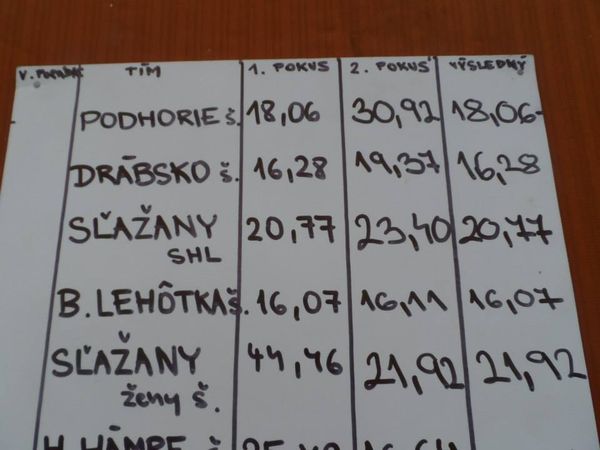 TÍM 1. POKUS 2. POKUS VÝSLEDNÝ
PODHORIE š. 18,06 30,92 18,06
DRÁBSKO š. 16,28 19,37 16,28
SĽAŽANY 20,77 23,40 20,77
SHL
B. LEHÔTKA š. 16,07 16,11 16,07
SĽAŽANY 44,46 21,92 21,92
ženy š.